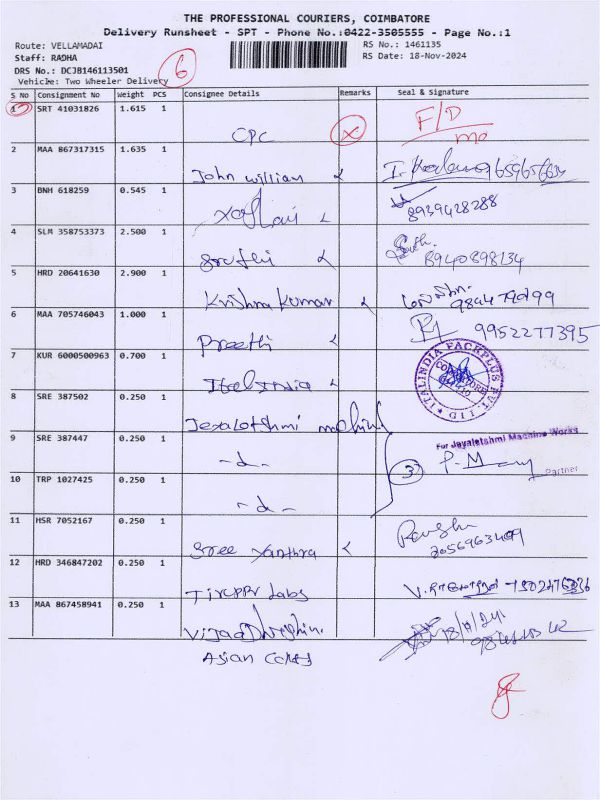 THE PROFESSIONAL COURIERS, COIMBATORE
Delivery Runsheet - SPT - Phone No.:0422-3505555 - Page No.:1
Route: VELLAMADAI RS No.: 1461135
Staff: RADHA RS Date: 18-Nov-2024
DRS No.: DCJB146113501
Vehicle: Two Wheeler Delivery 6
S No Consignment No Weight PCS Consignee Details Remarks Seal & Signature
1 SRT 41031826 1.615 1 CPC X F/D
2 MAA 867317315 1.635 1 John william
3 BNH 618259 0.545 1 8939428288
4 SLM 358753373 2.500 1 Sruthi 8940898134
5 HRD 20641630 2.900 1 Krishna Kumar
6 MAA 705746043 1.000 1 Preethi 9952277395
7 KUR 6000500963 0.700 1 ITALINDIA PACKPLUS PVT. LTD COIMBATORE
8 SRE 387502 0.250 1
For Jayaletshmi Machine Works
9 SRE 387447 0.250 1 -d- 3 P. Partner
10 TRP 1027425 0.250 1 -d-
11 HSR 7052167 0.250 1 Sree Yanthra
12 HRD 346847202 0.250 1 Labs
13 MAA 867458941 0.250 1 18/11/24
Asian